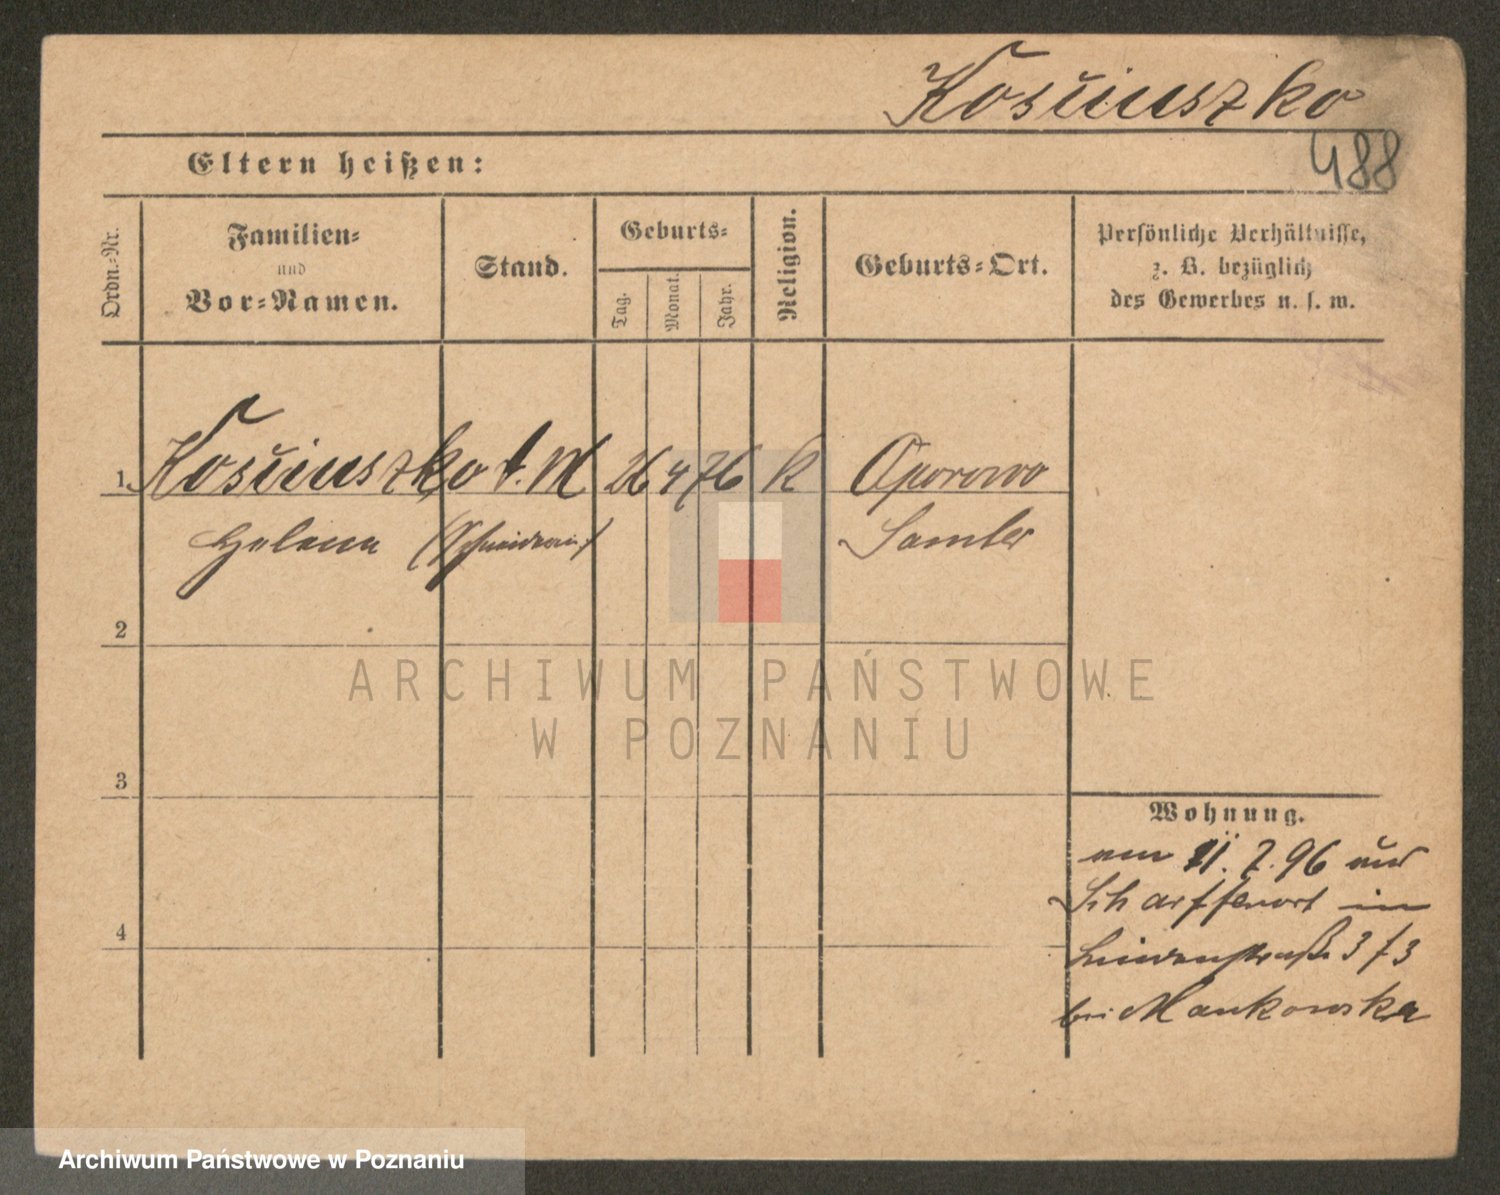 Kosciuszko
488
Eltern heißen:
Ordn.-Nr.
Familien-
und
Vor-Namen.
Stand.
Geburts-
Tag.
Monat.
Jahr.
Religion.
Geburts-Ort.
Persönliche Verhältnisse,
z. B. bezüglich
des Gewerbes u. s. w.
1
Kosciuszko 26 4 76 K Oporowo
Helena Samter
2
3
4
Wohnung.
am 11. 7. 96 aus
Scharffenort in
Lindenstraße 3 / 3
bei Mankowska
ARCHIWUM PAŃSTWOWE
W POZNANIU
Archiwum Państwowe w Poznaniu